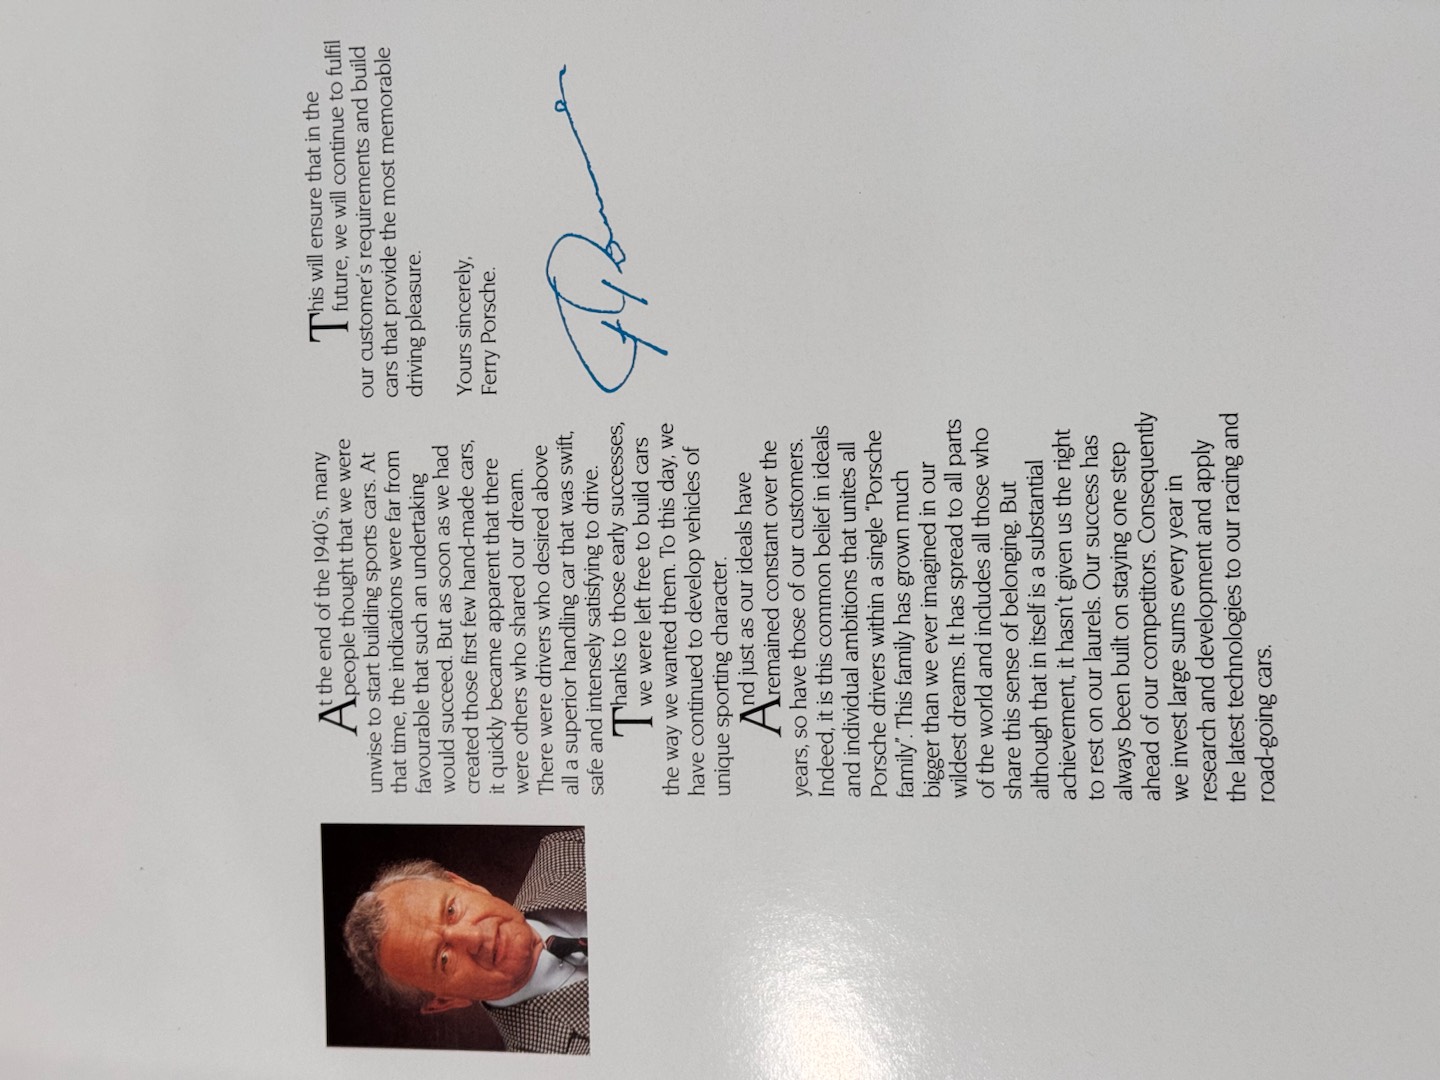 At the end of the 1940's, many
people thought that we were
unwise to start building sports cars. At
that time, the indications were far from
favourable that such an undertaking
would succeed. But as soon as we had
created those first few hand-made cars,
it quickly became apparent that there
were others who shared our dream.
There were drivers who desired above
all a superior handling car that was swift,
safe and intensely satisfying to drive.
Thanks to those early successes,
we were left free to build cars
the way we wanted them. To this day, we
have continued to develop vehicles of
unique sporting character.
And just as our ideals have
remained constant over the
years, so have those of our customers.
Indeed, it is this common belief in ideals
and individual ambitions that unites all
Porsche drivers within a single "Porsche
family". This family has grown much
bigger than we ever imagined in our
wildest dreams. It has spread to all parts
of the world and includes all those who
share this sense of belonging. But
although that in itself is a substantial
achievement, it hasn't given us the right
to rest on our laurels. Our success has
always been built on staying one step
ahead of our competitors. Consequently
we invest large sums every year in
research and development and apply
the latest technologies to our racing and
road-going cars.
This will ensure that in the
future, we will continue to fulfil
our customer's requirements and build
cars that provide the most memorable
driving pleasure.
Yours sincerely,
Ferry Porsche.